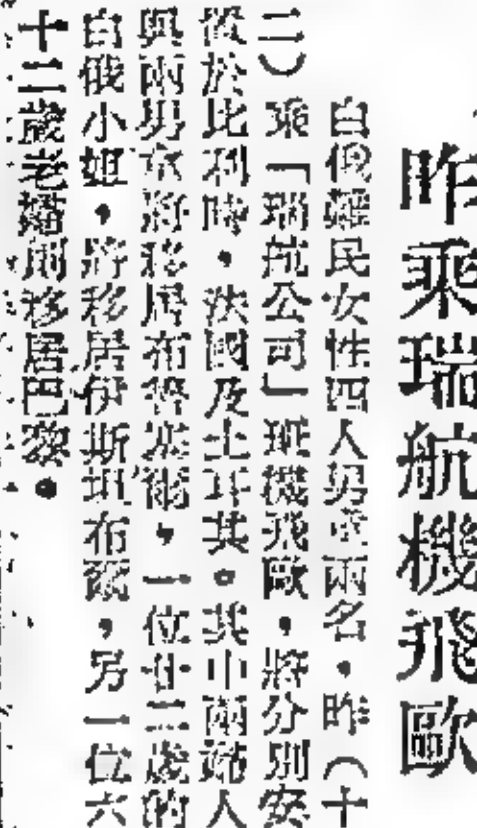 昨乘瑞航機飛歐
白俄難民女性四人男童兩名，昨（十
二）乘「瑞航公司」班機飛歐，將分別安
置於比利時，法國及土耳其。其中兩婦人
與兩男童將移居布魯塞爾，一位廿二歲的
白俄小姐，將移居伊斯坦布爾，另一位六
十二歲老婦則移居巴黎。